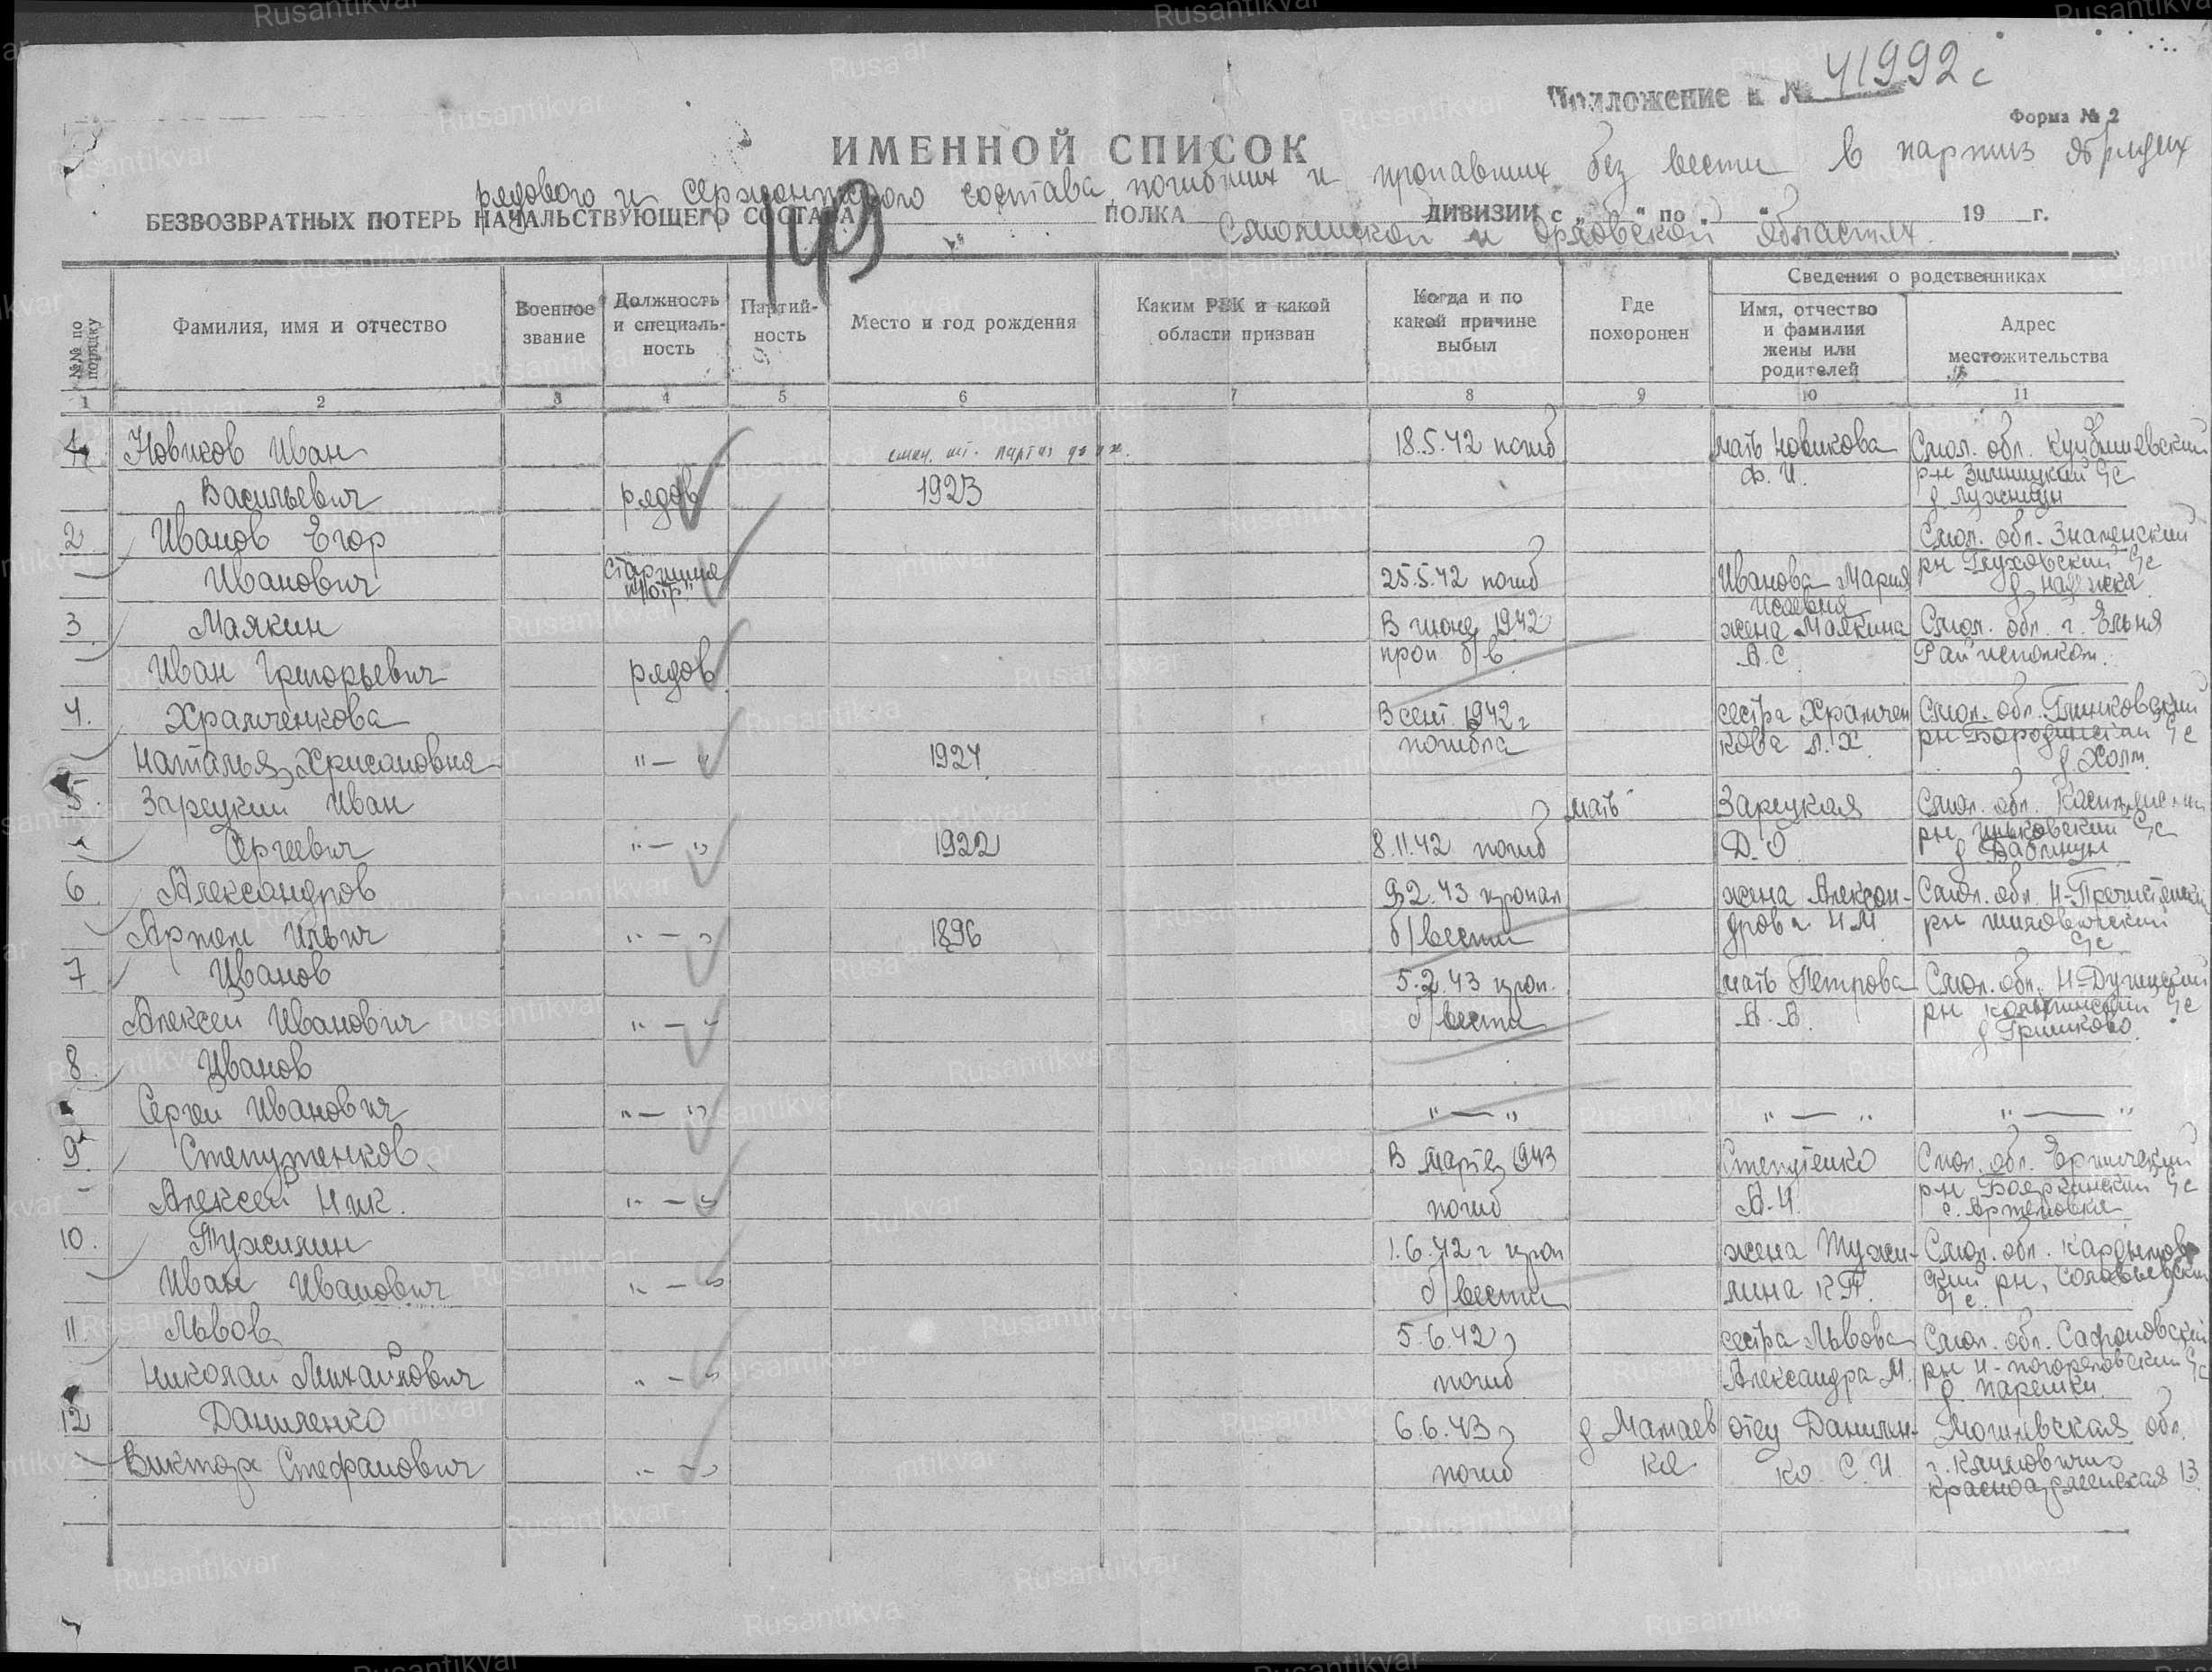 Приложение к № 41992с
Форма № 2
ИМЕННОЙ СПИСОК
рядового и сержантского состава погибших и пропавших без вести в партиз
БЕЗВОЗВРАТНЫХ ПОТЕРЬ НАЧАЛЬСТВУЮЩЕГО СОСТАВА ПОЛКА ДИВИЗИИ с „ “ по „ “ 19 г.
Смоленской и Орловской областях
№№ по порядку
Фамилия, имя и отчество
Военное звание
Должность и специаль-
ность
Партий-
ность
Место и год рождения
Каким РВК и какой
области призван
Когда и по
какой причине
выбыл
Где
похоронен
Сведения о родственниках
Имя, отчество
и фамилия
жены или
родителей
Адрес
местожительства
1 2 3 4 5 6 7 8 9 10 11
1 Новиков Иван 18.5.42 погиб мать Новикова Смол. обл. Куйбышевский
Васильевич рядов 1923 Ф. И. р-н Зимницкий с/с
2 Иванов Егор Смол. обл. Знаменский
Иванович старшина 25.5.42 погиб Иванова Мария рн с/с
3 Маякин В июне 1942 жена Маякина Смол. обл. г. Ельня
Иван Григорьевич рядов проп б/в В.С. Райисполком.
4. Храмченкова В сент. 1942 г сестра Храмчен Смол. обл. Глинковский
Наталья Хрисановна "—" 1924 погибла кова А.Х. рн Бородинский с/с
д. Холм.
5. Зарецкий Иван мать Зарецкая Смол. обл.
Сергеевич "—" 1922 8.11.42 погиб Д.О. рн с/с
6 Александров 9.2.43 пропал жена Алексан- Смол. обл. Н-Пречистенск
Артем Ильич "—" 1896 б/вести дрова Н.М. рн с/с
7 Иванов 5.2.43 проп. мать Петрова Смол. обл. Н-Дугинский
Алексей Иванович "—" б/вести А.В. рн с/с
д Гришково.
8 Иванов
Сергей Иванович "—" "—" "—" "—"
9 Степутенков В марте 1943 Степутенко Смол. обл. Ершичский
Алексей Ник. "—" погиб А.И. р-н с/с
с. Артемовка
10. Тужилин 1.6.42 г проп жена Тужи- Смол. обл. Кардымов
Иван Иванович "—" б/вести лина К.Т. ский рн, Соловьевский
с/с
11. Львов 5.6.42 сестра Львова Смол. обл. Сафоновский
Николай Михайлович "—" погиб Александра М. рн с/с
12 Даниленко 6.6.43 д Мамаев отец Данилен- Могилевская обл.
Виктор Стефанович "—" погиб ка ко С.И. г. Климовичи
Красноармейская 13